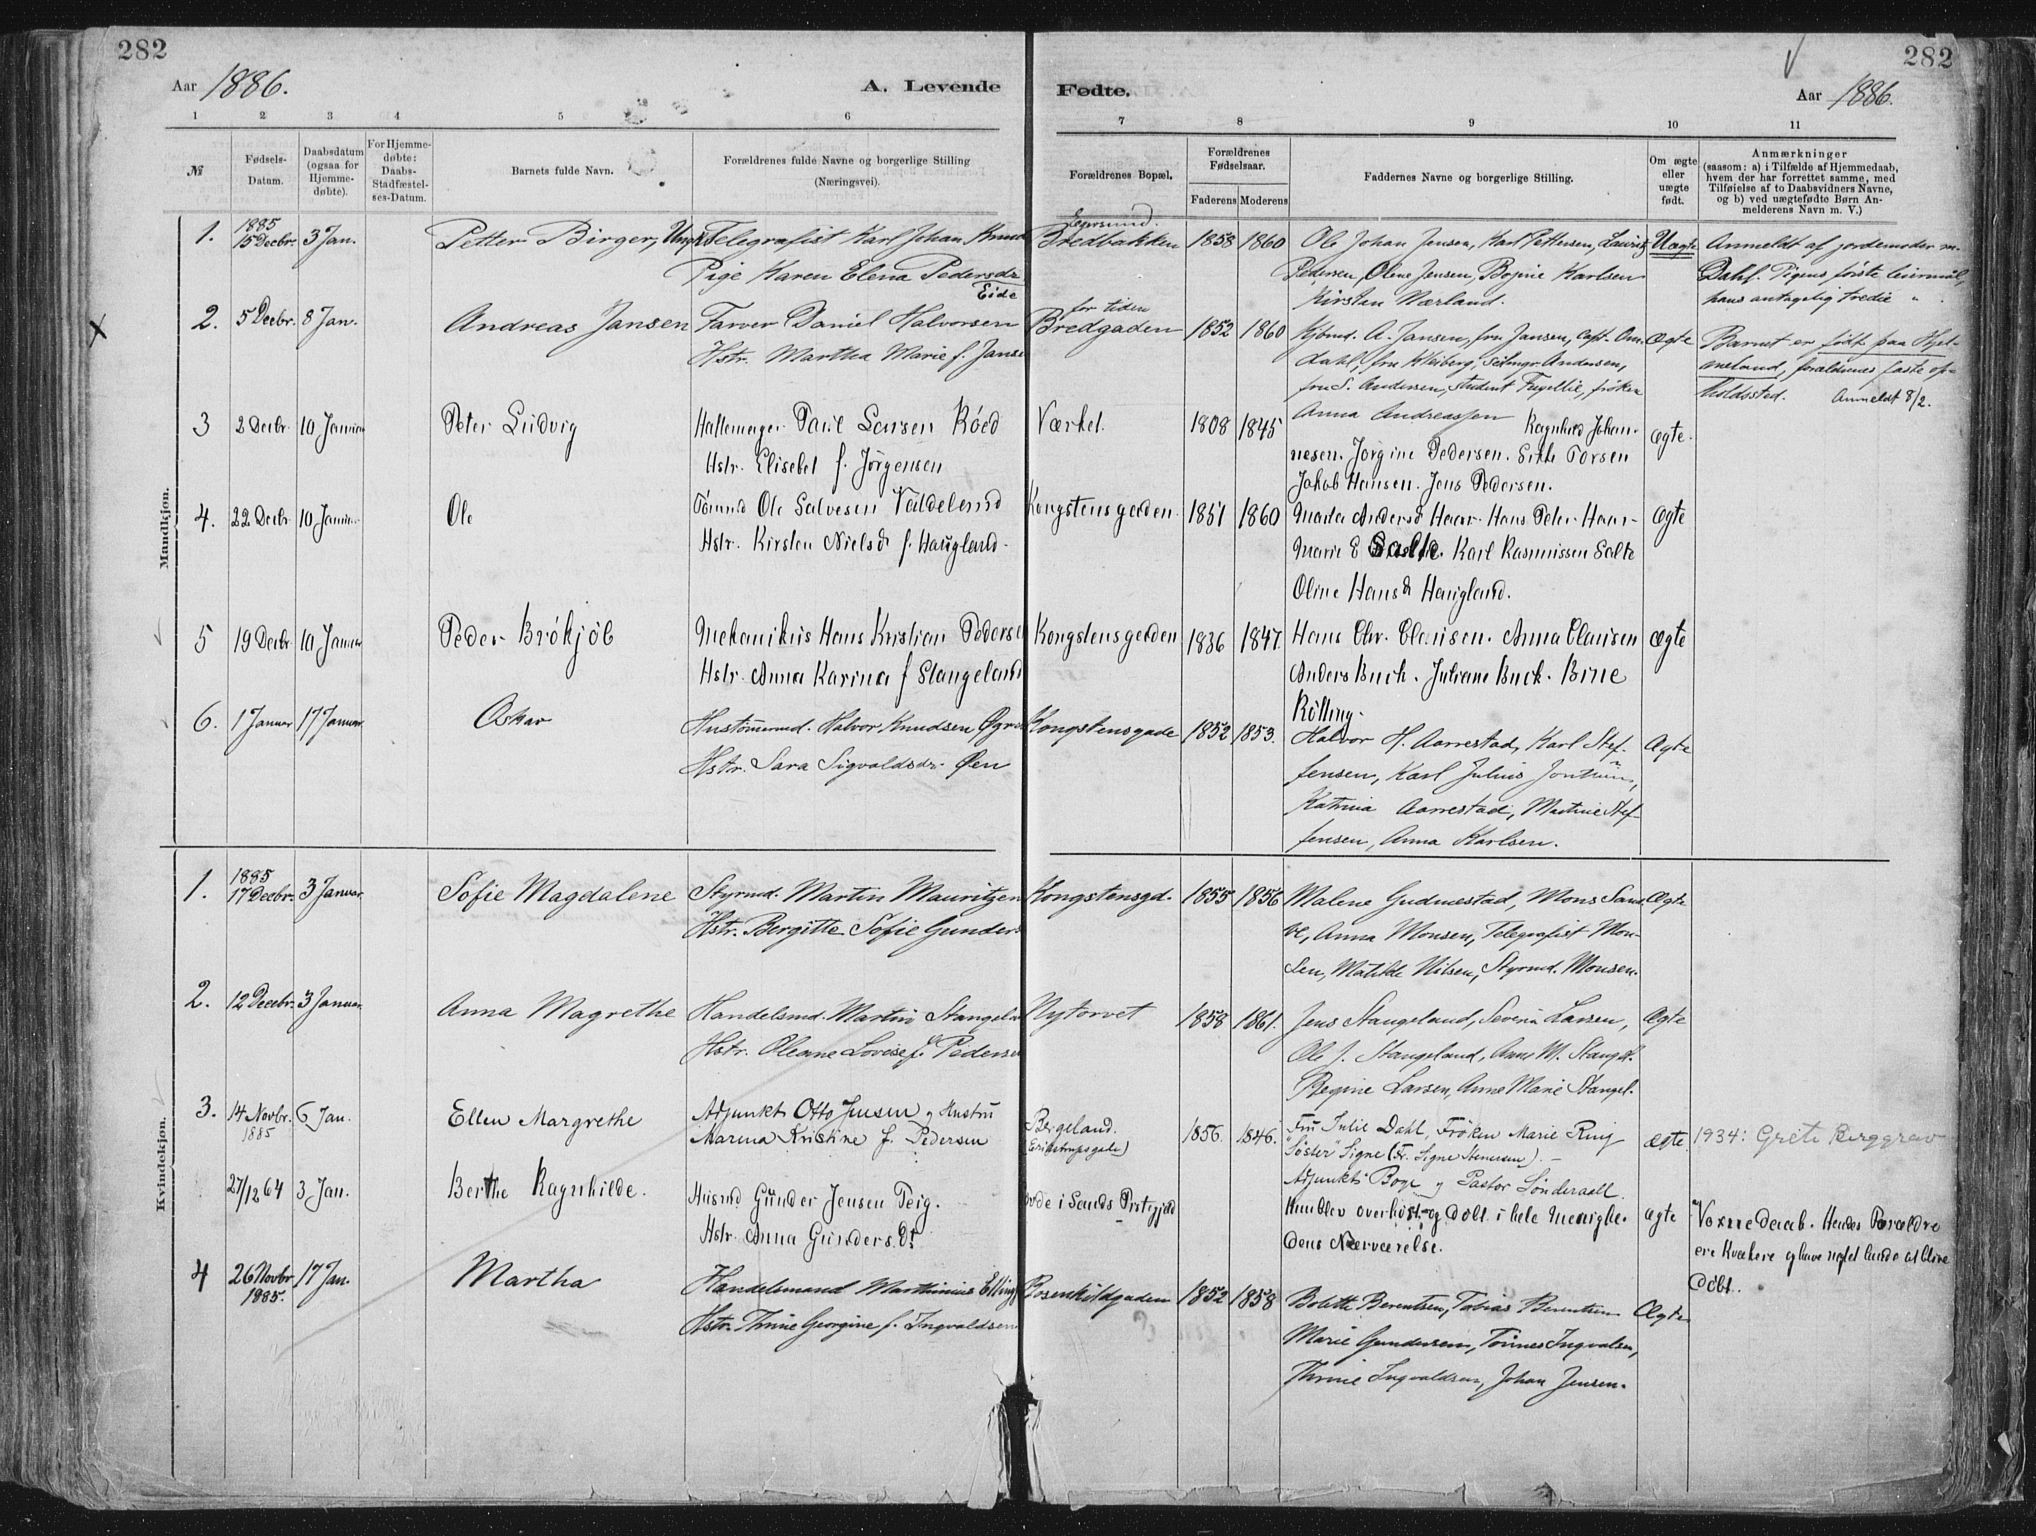 282
282
Aar 1886.
A. Levende
Fødte.
Aar 1886.
1 2 3 4 5 6
7 8 9 10 11
№
Fødsels-Datum.
Daabsdatum (ogsaa for Hjemme-døbte).
For Hjemme-døbte: Daabs-Stadfæstel-ses-Datum.
Barnets fulde Navn.
Forældrenes fulde Navne og borgerlige Stilling
(Næringsvei).
Forældrenes Bopæl.
Forældrenes Fødselsaar.
Faderens Moderens
Faddernes Navne og borgerlige Stilling.
Om ægte eller uægte født.
Anmærkninger
(saasom: a) i Tilfælde af Hjemmedaab,
hvem der har forrettet samme, med
Tilføielse af to Daabsvidners Navne,
og b) ved uægtefødte Børn An-
melderens Navn m. V.)
Mandkjøn.
1885
1. 15 Decbr. 3 Jan. Petter Birger, Telegrafist Karl Johan
Pige Karen Elena Pedersdr.
Eide
Egersund.
Bredbakken 1858 1860 Ole Johan Jensen, Karl Pettersen, Lauritz
Pedersen, Oline Jensen, Karlsen
Kirsten Nærland.
Uægte
Anmeldt af jordemoder
Dahl. Pigens første leiermål,
hans antagelig tredie "
2. 5 Decbr. 8 Jan. Andreas Jansen Farver Daniel Halvorsen
Hstr. Martha Marie f. Janse
for tiden
Bredgaden 1852 1860 Kjbmd. A. Jansen, fru Jansen, capt. Om-
dahl, fru Kleiberg, Andersen,
fru S. Andersen, student frøken
Anna Andreassen
Ægte
Barnet er født paa Hjel-
meland, forældrenes faste op-
holdssted. Anmeldt 8/2.
3 2 Decbr. 10 Januar Peter Ludvig Paul Larsen Röed
Hstr. Elisebet f. Jørgensen
Værket. 1808 1845 Ragnhild Johan-
nesen. Jørgine Pedersen. Torsen
Jakob Hansen. Jens Pedersen.
Ægte.
4. 22 Decbr 10 Januar Ole Tömmd Ole Salvesen
Hstr. Kirsten Nielsd f. Haugland.
Kongstensgaden. 1851 1860 Marta Andersd Haar. Hans Peter Haar
Marie E Salte. Karl Rasmussen Salte
Oline Hansd Haugland.
Ægte
5 19 Decbr. 10 Januar Peder Brökjöb Mekanikus Hans Kristian Pederse
Hstr. Anna Karina f Stangeland
Kongstensgaden 1836 1847. Hans Chr. Clausen. Anna Clausen
Anders Buch. Juliane Buck. Bine
Rölling.
Ægte
6. 1 Januar 17 Januar. Oskar Hustömmermd. Halvor Knudsen
Hstr. Sara Sigvaldsdr. Øen
Kongstensgade 1852 1853. Halvor H. Aarrestad, Karl Stef-
fensen, Karl Julius
Katrina Aarrestad, Martine Stef-
fensen, Anna Karlsen.
Ægte
Kvindekjøn.
1885
1. 17 Decbr. 3 Januar. Sofie Magdalene Styrmd. Martin Mauritzen
Hstr. Bergitte Sofie Gunders
Kongstensgd. 1855 1856 Malene Gudmestad, Mons San-
ve, Anna Monsen, Telegrafist Mon-
sen, Matilde Nilsen, Styrmd. Monsen.
Ægte
2. 12 Decbr. 3 Januar. Anna Magrethe Handelsmd. Martin Stangela
Hstr. Oleane Lovise f. Pederse
Nytorvet 1858 1861. Jens Stangeland, Severin Larsen,
Ole J. Stangeland, Anne M. Stangel.
Regine Larsen, Anne Marie Stangel.
Ægte
3. 14 Novbr. 6 Jan. Ellen Margrethe Adjunkt Otto Jensen og Hustru
1885
Marina Kristine f. Pedersen
Bergeland.
(Erichstrupsgade)
1856. 1846. Frü Julie Dahl, Frøken Marie Ring
"Søster" Signe (Fr. Signe Stenersen). –
Adjunkt Boye og Pastor Sönderaall.
ægte. 1934: Grete Berggrav
27/12 64 3 Jan. Berthe Ragnhilde. Husmd Gunder Jensen Teig.
Hstr. Anna Gunders.Dt
i Sands Prstegjeld
Hun blev overhört og Döbt i hele Menighe-
dens Nærværelse.
ægte
Voxne Daab. Hendes Forældre
ere Kvækere og have at blive
Döbt.
4 26 Novbr 17 Jan. Martha Handelsmand Marthinius Elling
1885.
Hstr. Thrine Georgine f. Ingvaldsen
Rosenkildgaden 1852 1858 Bolette Berentsen, Tobias Berentsen
Marie Gundersen, Tönnes Ingvalsen,
Thrine Ingvaldsen, Johan Jensen.
Ægte